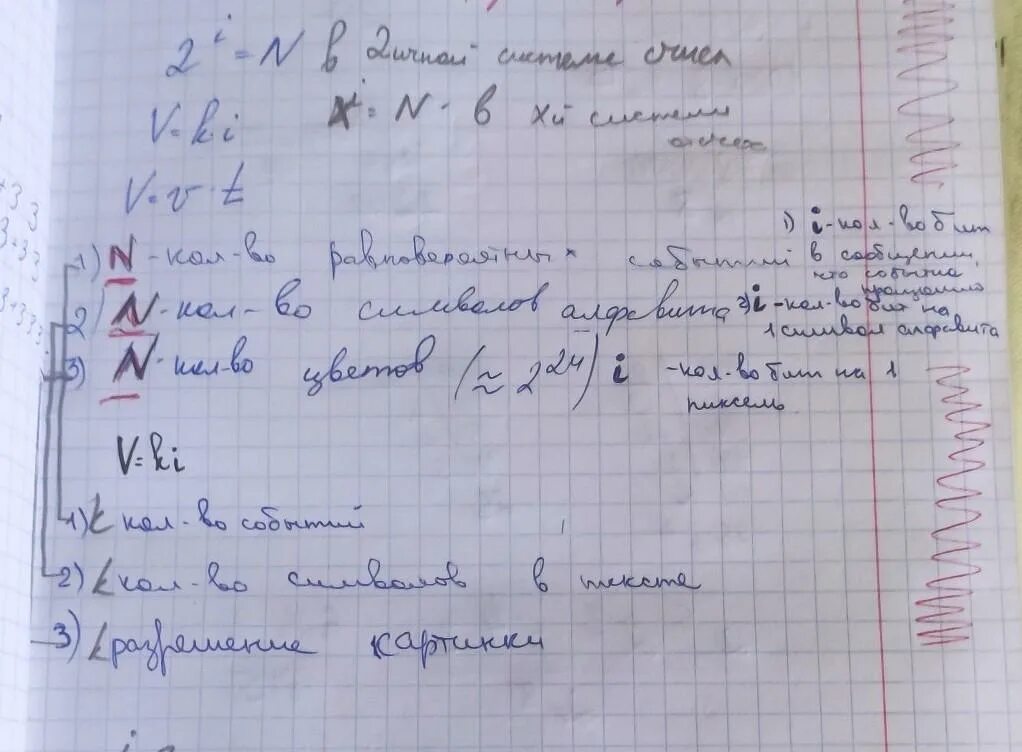 2^i = N в 2ичной системе счисл
V=ki
X^i = N - в Xй системе
V=v·t
1) N - кол-во равновероятных событий
1) i - кол-во бит
в сообщении,
что событие
произошло
2) N - кол-во символов алфавита
2) i - кол-во бит на
1 символ алфавита
3) N - кол-во цветов (≈ 2^24) i - кол-во бит на 1
пиксель
V=ki
1) k кол-во событий
2) k кол-во символов в тексте
3) k разрешение картинки